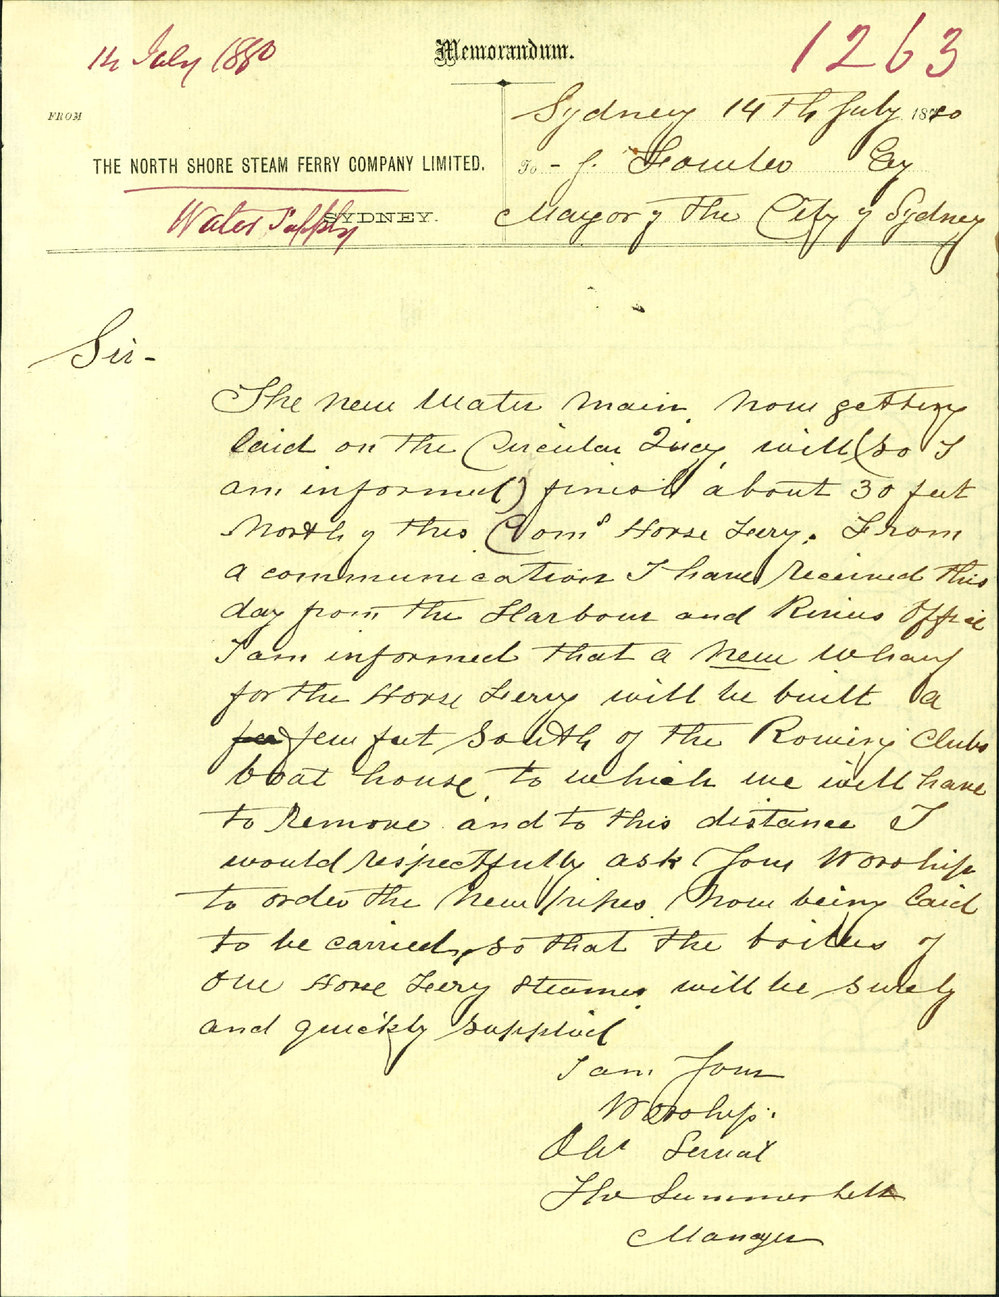 14 July 1880
Memorandum.
1263
FROM
Sydney 14th July 1880
THE NORTH SHORE STEAM FERRY COMPANY LIMITED.
To - J. Fowler Esq
Water Supply
SYDNEY.
Mayor of the City of Sydney
Sir -
The new Water main now getting
laid on the Circular Quay, will (so I
am informed) finish about 30 feet
North of this Coms Horse Ferry. From
a communication I have received this
day from the Harbour and Rivers Office
I am informed that a new Wharf
for the Horse Ferry will be built a
few feet South of the Rowing Clubs
boat house, to which we will have
to remove and to this distance I
would respectfully ask Your Worship
to order the new pipes now being laid
to be carried, so that the boilers of
our Horse Ferry Steamer will be surely
and quickly supplied
I am Your
Worship.
Obt Servat
Tho Summerbell
Manager